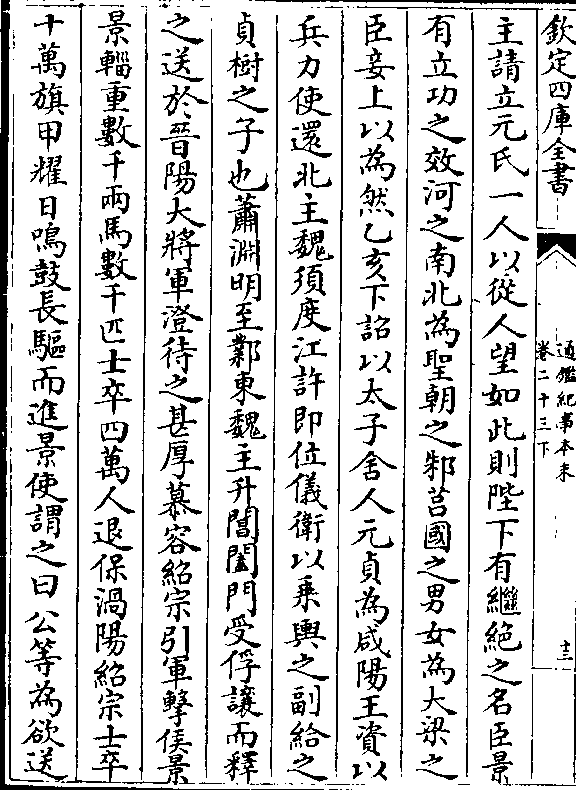 欽定四庫全書
通鑑紀事本末
卷二十三下
十三
主請立元氏一人以從人望如此則陛下有繼絶之名臣景
有立功之效河之南北為聖朝之邾莒國之男女為大梁之
臣妾上以為然乙亥下詔以太子舍人元貞為咸陽王資以
兵力使還北主魏須度江許即位儀衛以乗輿之副給之
貞樹之子也蕭淵明至鄴東魏主升閶闔門受俘讓而釋
之送於晉陽大將軍澄待之甚厚慕容紹宗引軍擊侯景
景輜重數千兩馬數千匹士卒四萬人退保渦陽紹宗士卒
十萬旗甲耀日鳴鼓長驅而進景使謂之曰公等為欲送